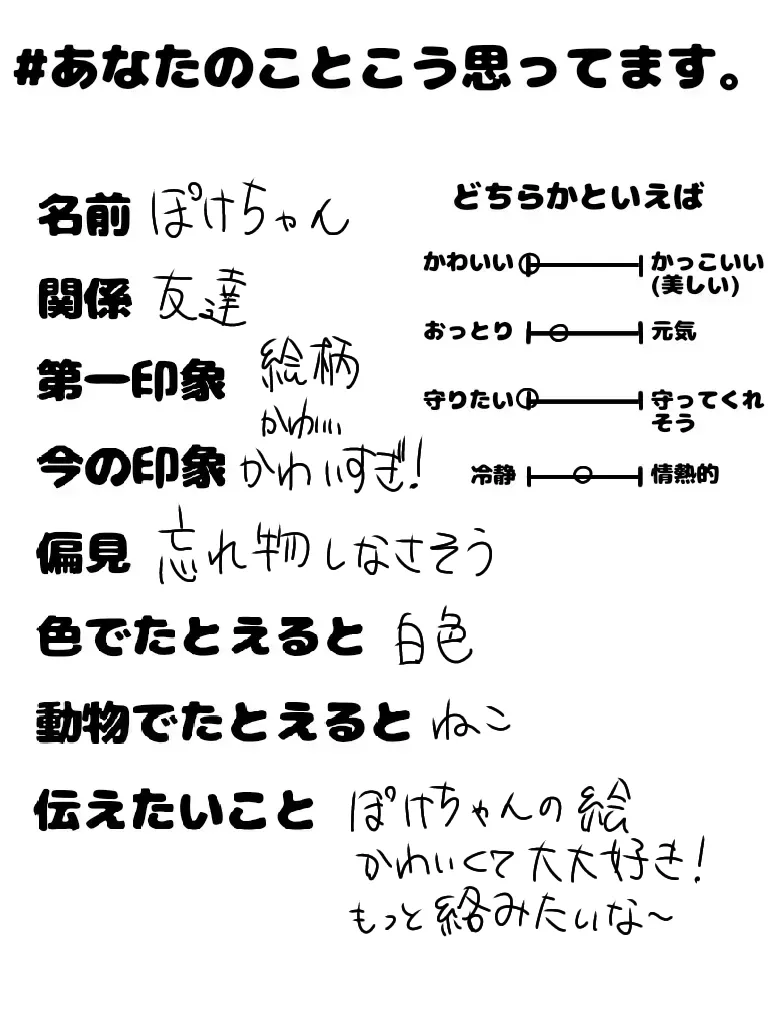 #あなたのことこう思ってます。
名前 ぽけちゃん
関係 友達
第一印象 絵柄
かわいい
今の印象 かわいすぎ!
偏見 忘れ物しなさそう
色でたとえると 白色
動物でたとえると ねこ
伝えたいこと ぽけちゃんの絵
かわいくて大大好き!
もっと絡みたいな～
どちらかといえば
かわいい かっこいい
(美しい)
おっとり 元気
守りたい 守ってくれ
そう
冷静 情熱的